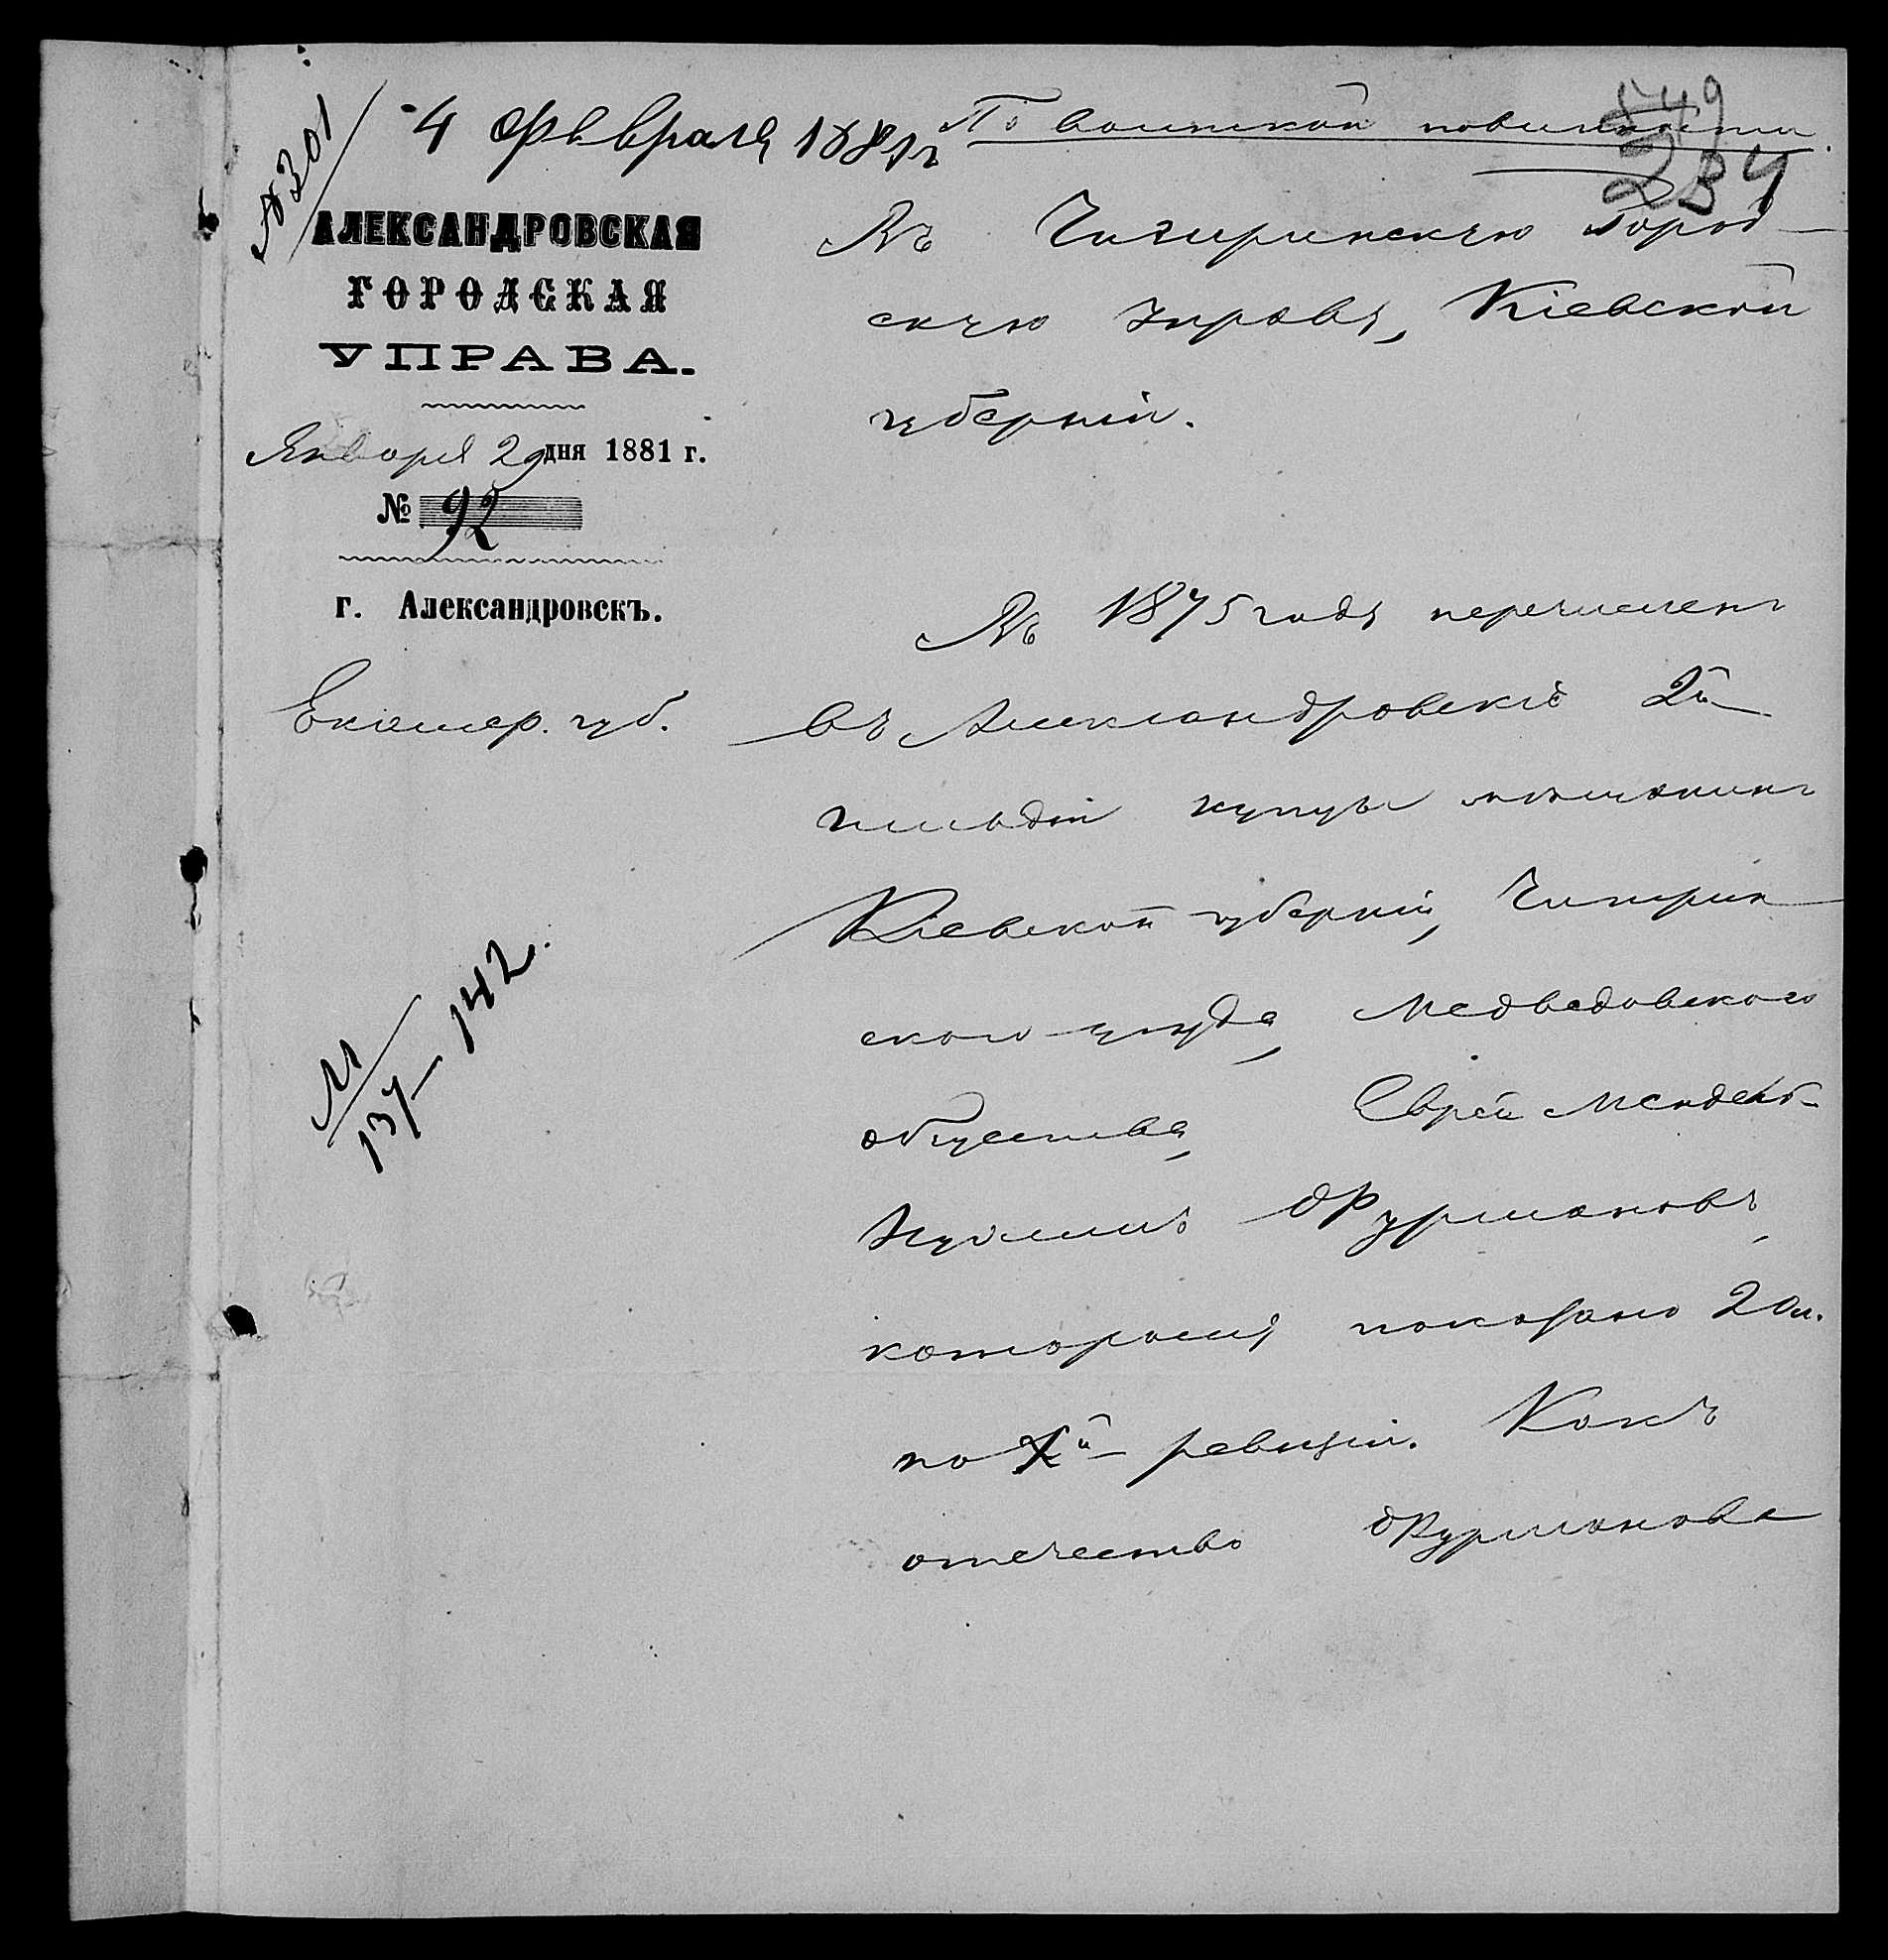 № 301
4 Февраля 1881 г
По воинской повинности.
549
234
АЛЕКСАНДРОВСКАЯ
ГОРОДСКАЯ
УПРАВА.
Января 29 дня 1881 г.
№ 92
г. Александровскъ.
Екатер. губ.
Въ Чигиринскую Город-
скую Управу, Кіевской
губерніи.
Въ 1875 году перечисленъ
въ Александровскіе 2й
гильдіи купцы мѣщанинъ
Кіевской губерніи, Чигирин-
скаго уѣзда, Медведовскаго
общества, Еврей Мендель-
Нухимъ Фурмановъ,
которому показано 20 л.
по Xй ревизіи. Какъ
отечество Фурманова
М/137–142.